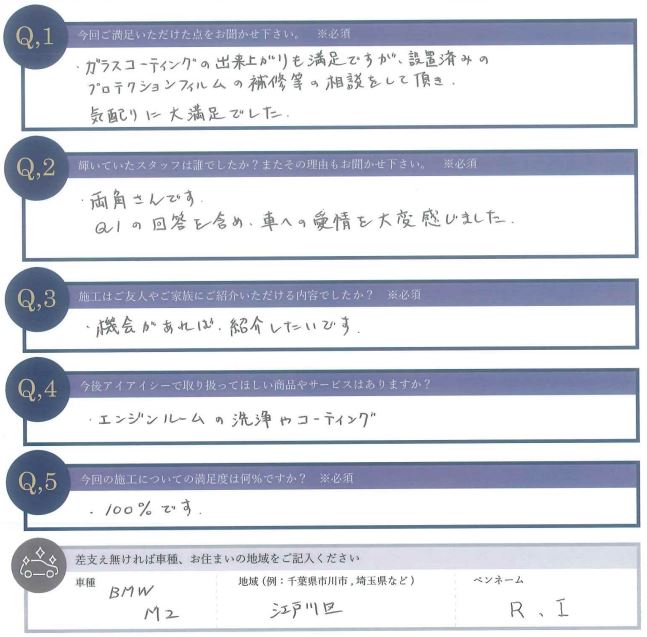 Q,1 今回ご満足いただけた点をお聞かせ下さい。 ※必須
・ガラスコーティングの出来上がりも満足ですが、設置済みの
プロテクションフィルムの補修等の相談をして頂き.
気配りに大満足でした.
Q,2 輝いていたスタッフは誰でしたか？またその理由もお聞かせ下さい。 ※必須
・両角さんです.
Q1の回答を含め、車への愛情を大変感じました.
Q,3 施工はご友人やご家族にご紹介いただける内容でしたか？ ※必須
・機会があれば、紹介したいです.
Q,4 今後アイアイシーで取り扱ってほしい商品やサービスはありますか？
・エンジンルームの洗浄やコーティング
Q,5 今回の施工についての満足度は何％ですか？ ※必須
・100％です.
差支え無ければ車種、お住まいの地域をご記入ください
車種 地域（例：千葉県市川市，埼玉県など） ペンネーム
BMW
M2 江戸川区 R、I